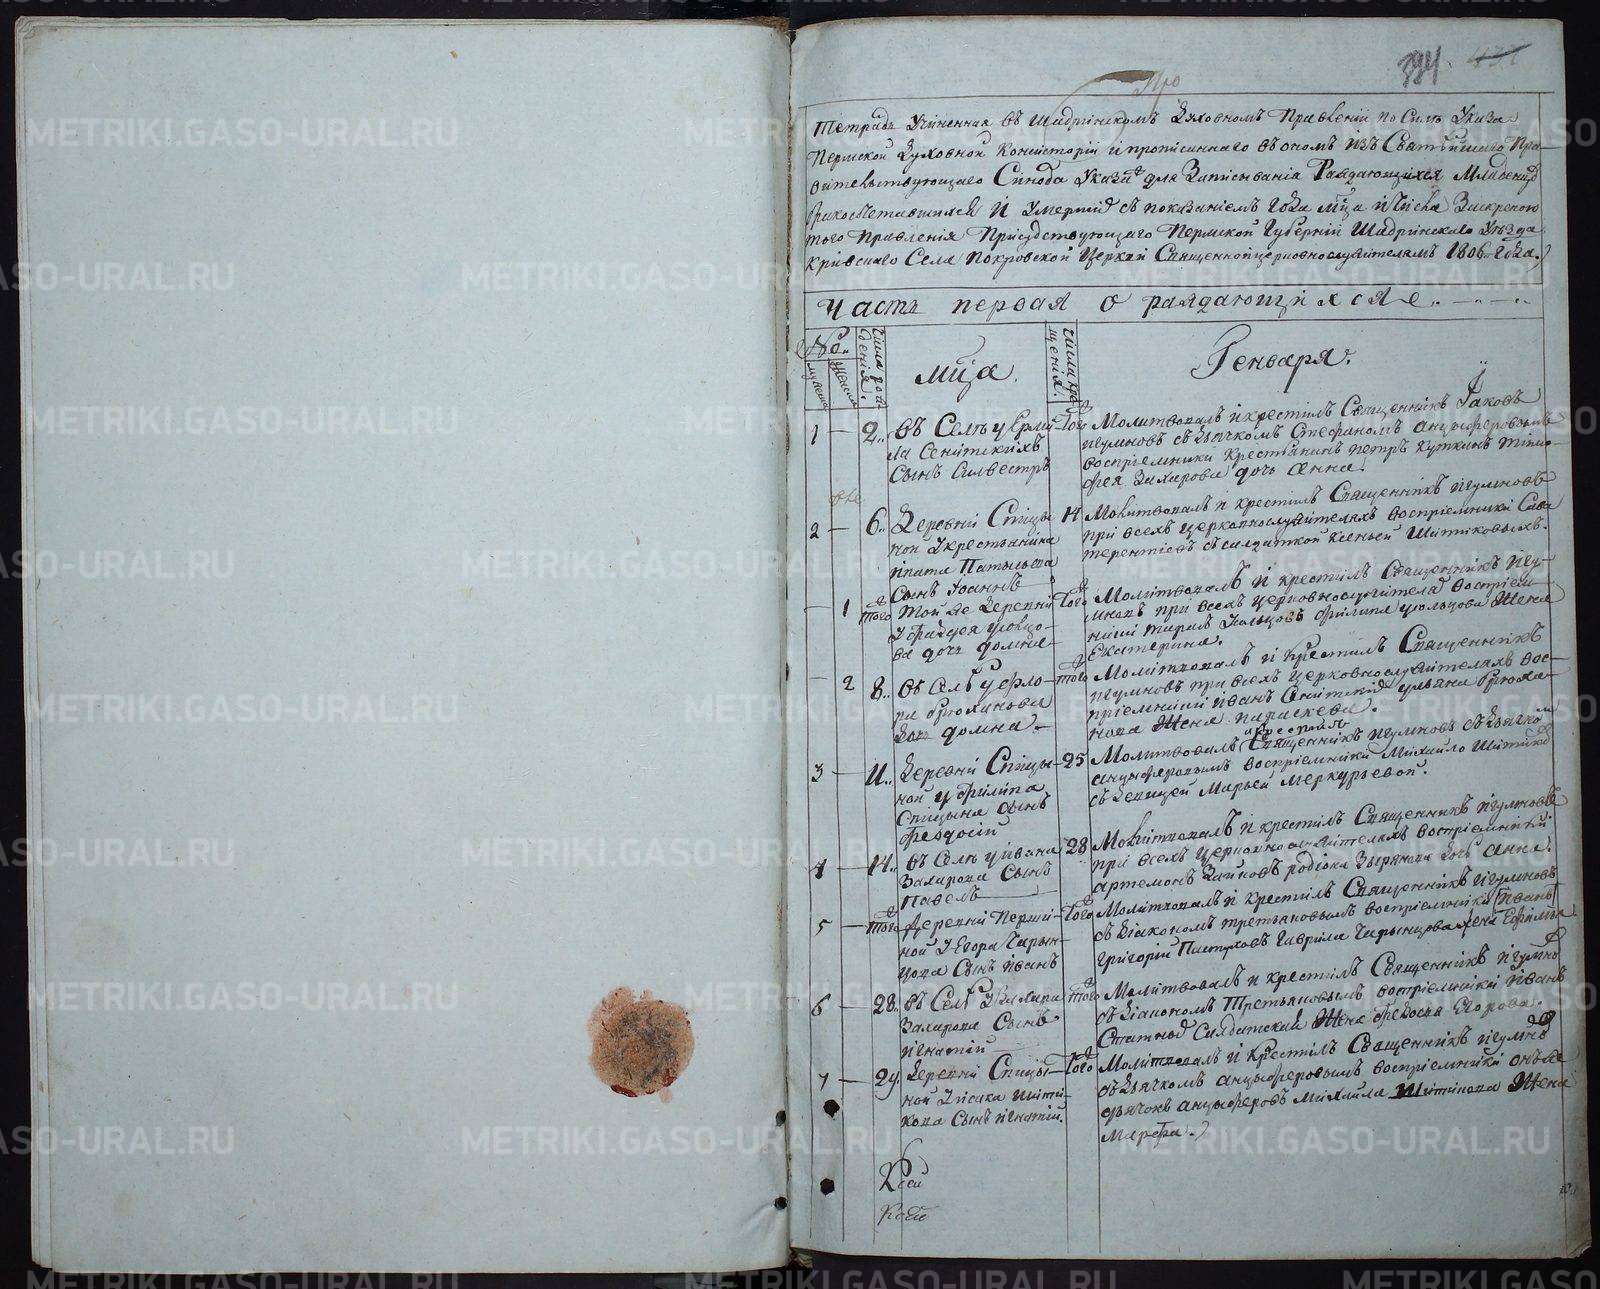 394. 431
Тетрадь Учиненная въ Шадринскомъ Духовномъ Правленіи по Силѣ Указа
Пермской Духовной Консисторіи и прописаннаго въ ономъ изъ Святѣйшаго Пра-
вительствующаго Синода Указа для Записыванія Раждающихся Младенцовъ
бракосочетавшихся И Умершихъ съ показаніемъ Года мца и Числа За скрепою
того Правленія Присудствующаго Пермской Губерніи Шадринскаго Уезда
Кривскаго Села Покровской Церкви Священноцерковнослужителямъ 1806 года.
Часть первая о раждающихся
№
мужеска
Женска
Числа рож-
денія.
мца.
Числа кре-
щенія.
Генваря.
1 — 2.. въ Селѣ у Ермі-
ла Сенитскихъ
Сынъ Силвестръ
Того Молитвовалъ и крестилъ Священникъ Іаковъ
игумновъ съ дьячкомъ Стефаномъ анцыферовымъ
воспріемники Крестьянинъ петръ Тимо-
фея Захарова дочь Анна.
2 — 6.. Деревни Спицы-
ной У крестьянина
ипата
Сынъ Іоаннъ
14 Молитвовалъ и крестилъ Священникъ игумновъ
при всехъ церковнослужителяхъ воспріемники Сава
терентіевъ съ салдаткой Шитиковыхъ.
— 1 того Той же деревни
У
ва дочь домна
Того Молитвовалъ и крестилъ Священникъ игу-
мновъ при всехъ церковнослужителяхъ воспріем-
ники филипа Жена
Екатерина.
— 2 8.. въ Селѣ у фло-
ра брюханова
Дочь домна —
того Молитвовалъ и Крестилъ Священникъ
игумновъ при всехъ церковнослужителяхъ вос-
пріемники иванъ Сенитскихъ ульяна брюха-
нова Жена параскева.
3 — 11.. Деревни Спицы-
ной у филипа
Спицына Сынъ
феодосій
25 Молитвовалъ и крестилъ Священникъ игумновъ съ дьячкомъ
анцыферовымъ воспріемники Михайло Шитиковъ
съ девицей Марьей Меркурьевой.
4 — 14.. въ Селѣ у ивана
Захарова Сынъ
Павелъ
28 Молитвовалъ и крестилъ Священникъ игумновъ
при всехъ церковнослужителяхъ воспріемники
артемонъ Заиковъ родіона Зырянова дочь анна.
5 — того Деревни Перши-
ной У Егора Чарын-
цова Сынъ иванъ
Того Молитвовалъ и крестилъ Священникъ игумновъ
съ діакономъ третьяковымъ воспріемники иванъ
григорій Пастуховъ гаврила Чарынцова жена Ефимья
6 — 28.. въ Селѣ У Захара
Захарова Сынъ
игнатій
того Молитвовалъ и крестилъ Священникъ игумно
съ діакономъ Третьяковымъ воспріемники иванъ
Статныхъ Салдатская Жена федосья Егорова.
7 — 29 Деревни Спицы-
ной У исака Шити-
кова Сынъ игнатій.
Того Молитвовалъ и Крестилъ Священникъ игумно
съ дьячкомъ анцыферовымъ воспріемники онъ же
дьячокъ анцыферовъ Михайла Шитикова Жена
Марфа.
METRIKI.GASO-URAL.RU